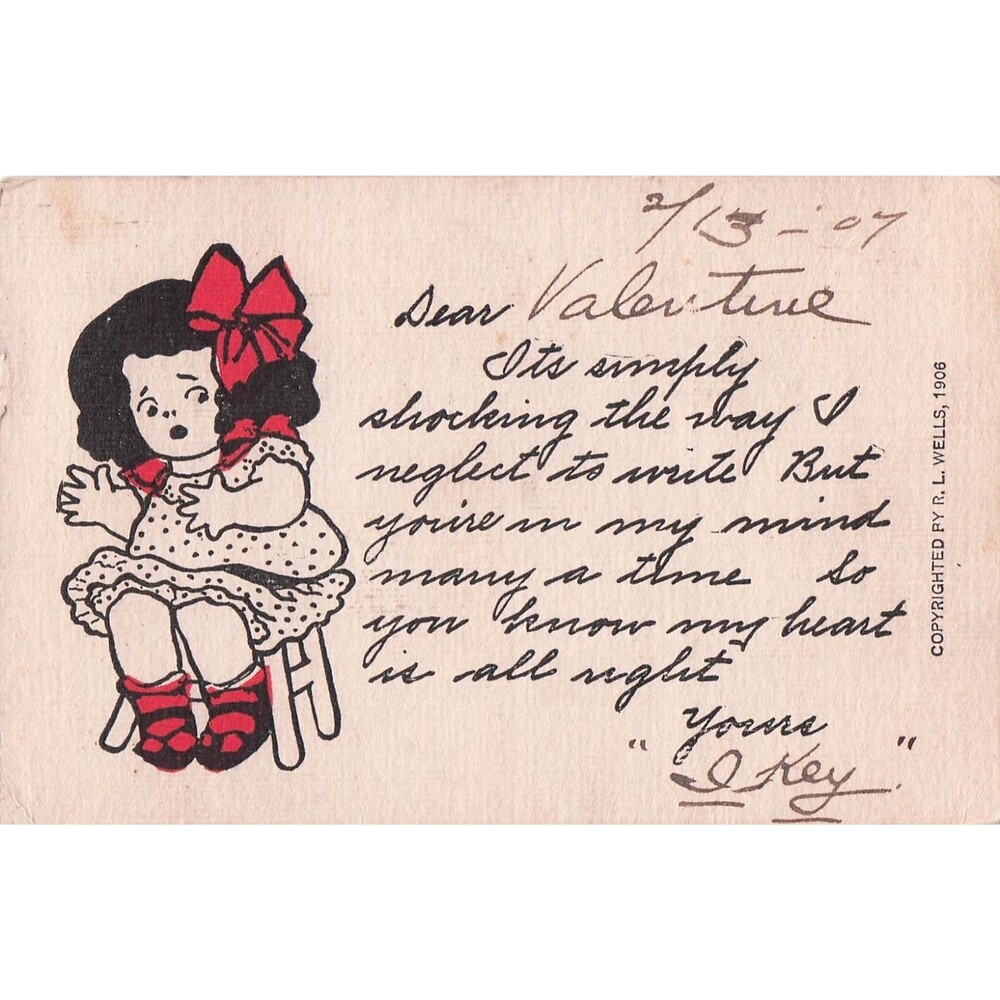 2/13-'07
Dear Valentine
Its simply
shocking the way I
neglect to write But
you're in my mind
many a time So
you know my heart
is all right
Yours
"I Key."
COPYRIGHTED BY R. L. WELLS, 1906